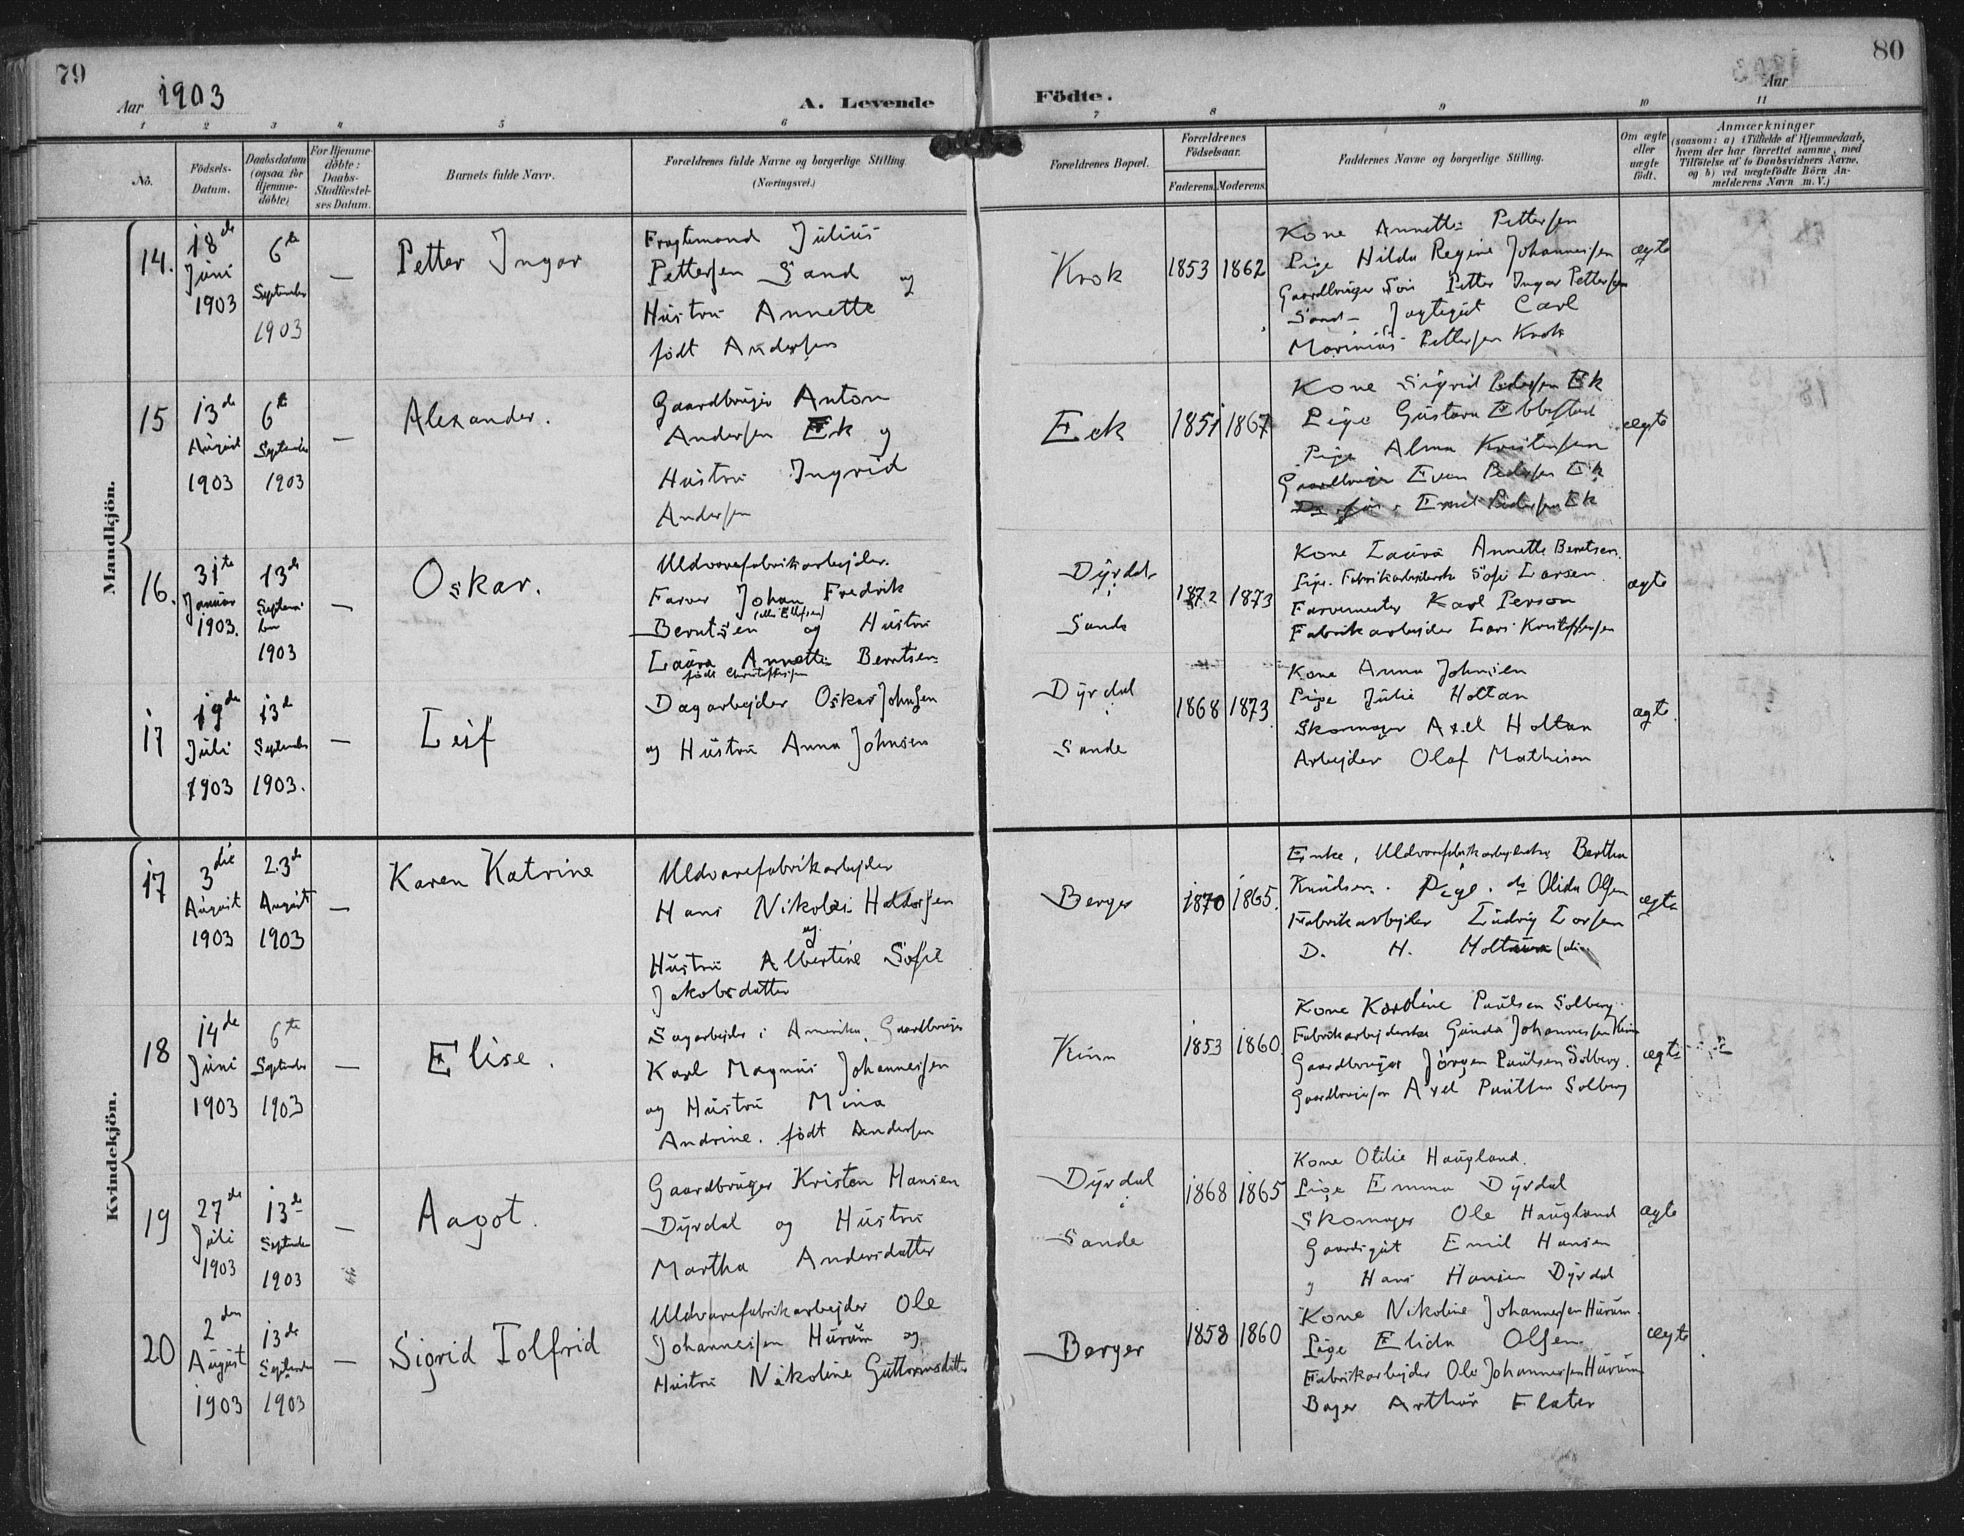 79
Aar 1903
A. Levende
Födte.
Aar
80
1 2 3 4 5 6 7 8 9 10 11
No.
Födsels-
Datum.
Daabsdatum
(ogsaa for
Hjemme-
döbte)
For Hjemme-
döbte:
Daabs-
Stadfæstel-
ses Datum.
Barnets fulde Navn.
Forældrenes fulde Navne og borgerlige Stilling.
(Næringsvei.)
Forældrenes Bopæl.
Forældrenes
Födselsaar.
Faderens. Moderens.
Faddernes Navne og borgerlige Stilling.
Om ægte
eller
uægte
födt.
Anmærkninger
(saasom: a) i Tilfælde af Hjemmedaab,
hvem der har forrettet samme, med
Tilföielse af to Daabsvidners Navne,
og b) ved uægtefödte Börn An-
melderens Navn m. V.)
Mandkjön.
14.
18de
Juni
1903
6te
September
1903
—
Petter Ingar
Fragtemand Julius
Pettersen Sand og
Hustru Annette
født Andersen
Krok
1853 1862
Kone Annette Pettersen
Pige Hilda Regine Johannessen
Gaardbruger Søn Petter Ingar Pettersen
Sand Jagtegut Carl
Marinius Pettersen Krok
ægte
15
13de
August
1903
6te
September
1903
—
Alexander.
Gaardbruger Anton
Andersen Ek og
Hustru Ingrid
Andersen
Eek
1851 1867
Kone Sigrid Pedersen Ek
Pige Gustava Ebbestad
Pige Alma Kristensen
Gaardbruger Even Pedersen Ek
Emil Pedersen Ek
ægte
16.
31te
Januar
1903.
13de
Septem-
ber
1903
—
Oskar.
Uldvarefabrikarbejder.
Farver Johan Fredrik
(eller Ellefsen)
Berntsen og Hustru
Laura Annette Berntsen
født Christoffersen
Dyrdal
i
Sande
1872 1873
Kone Laura Annette Berntsen.
Pige. Fabrikarbejderske Sofie Larsen.
Farvemester Karl Person
Fabrikarbejder Lars Kristoffersen
ægte
17
19de
Juli
1903
13de
September
1903.
—
Leif
Dagarbejder Oskar Johnsen
og Hustru Anna Johnsen
Dyrdal
i
Sande
1868 1873
Kone Anna Johnsen
Pige Julie Holtan
Skomager Axel Holtan
Arbejder Olaf Mathisen
ægte.
Kvindekjön.
17
3die
August
1903
23de
August
1903
—
Karen Katrine
Uldvarefabrikarbejder
Hans Nikolai Haldorsen
og
Hustru Albertine Sofie
Jakobsdatter
Berger
1870 1865.
Enke, Uldvarefabrikarbejderske Bertha
Knudsen. Pige. do Olida Olsen
Fabrikarbejder Ludvig Larsen
D. H.
ægte
18
14de
Juni
1903
6te
September
1903
—
Elise.
Sagarbejder i Amerika, Gaardbruger
Karl Magnus Johannessen
og Hustru Mina
Andrine. født Andersen
Kinn
1853 1860
Kone Karoline Paulsen Solberg
Fabrikarbejderske Gunda Johannessen Kinn
Gaardbruger Jörgen Paulsen Solberg.
Gaardbruger Søn Axel Paulsen Solberg
ægte
19
27de
Juli
1903
13de
September
1903
—
Aagot.
Gaardbruger Kristen Hansen
Dyrdal og Hustru
Martha Andersdatter
Dyrdal
i
Sande
1868 1865
Kone Otilie Haugland.
Pige Emma Dyrdal
Skomager Ole Haugland
Gaardsgut Emil Hansen
og Hans Hansen Dyrdal
ægte
20
2den
August
1903
13de
September
1903
—
Sigrid Tolfrid
Uldvarefabrikarbejder Ole
Johannessen Hurum og
Hustru Nikoline Guttormsdatter
Berger
1858 1860
Kone Nikoline Johannessen Hurum.
Pige Elida Olsen
Fabrikarbejder Ole Johannessen Hurum
Bager Arthur Flater
ægte